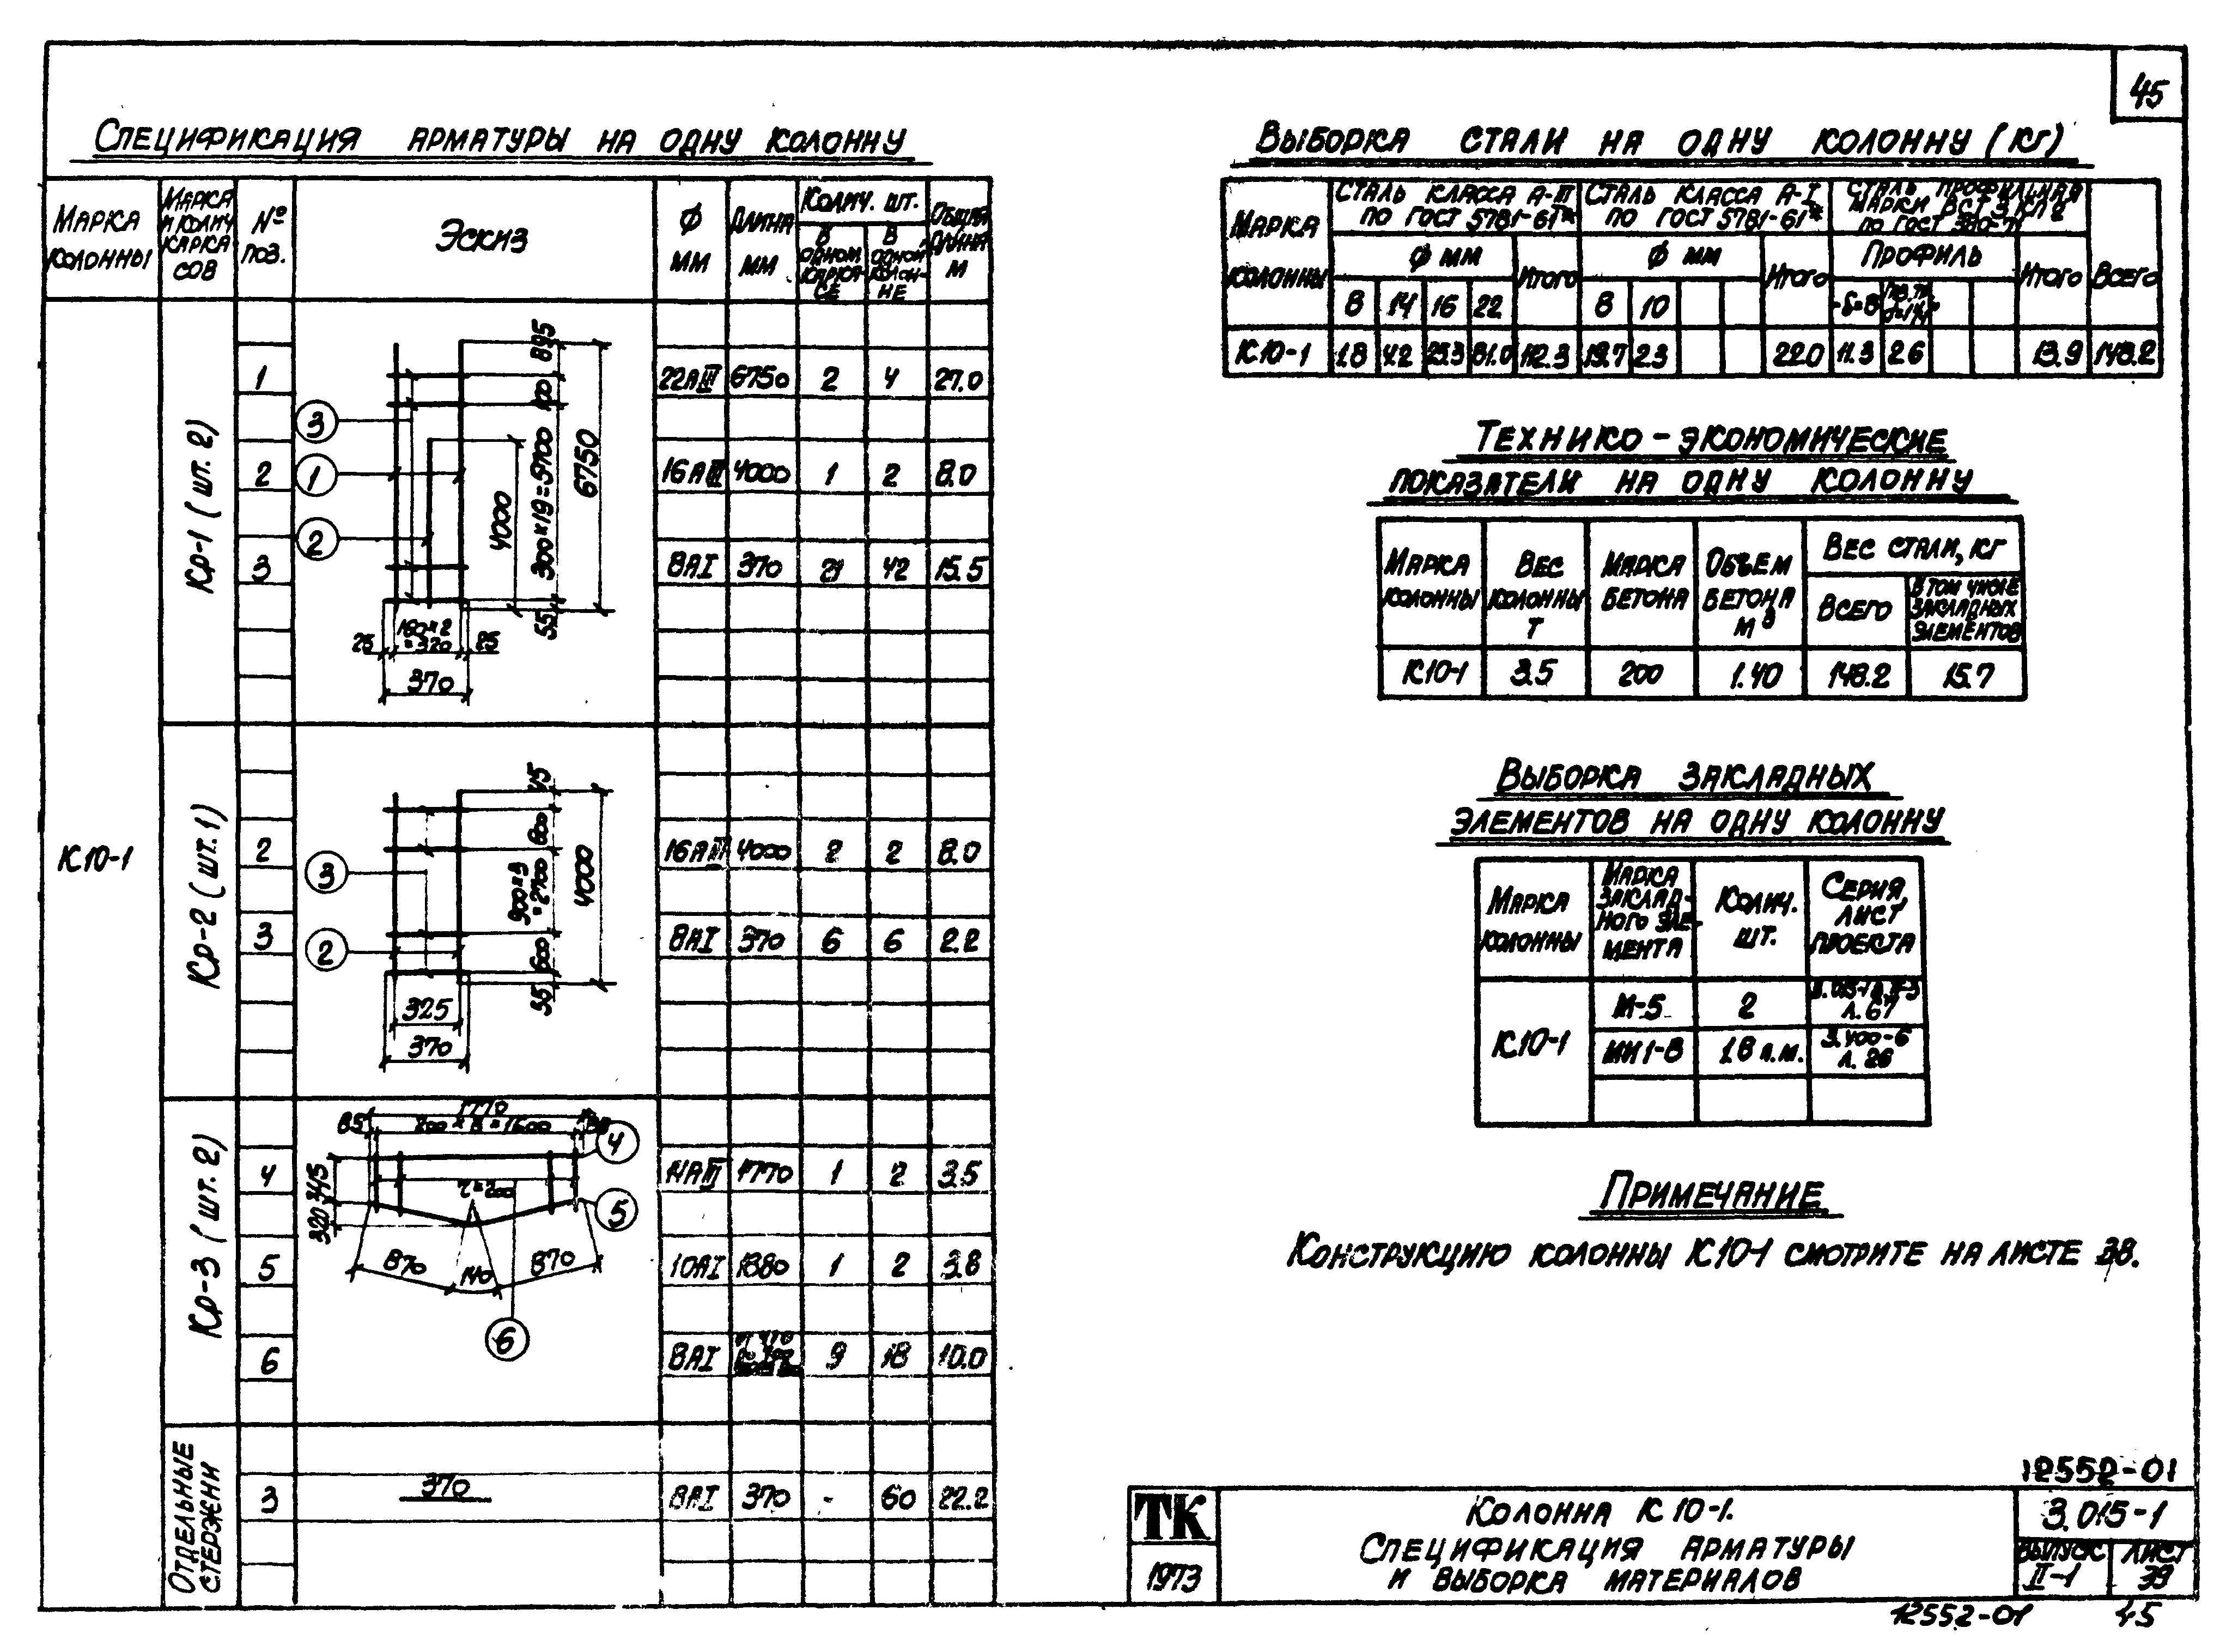 45
Спецификация арматуры на одну колонну
Марка колонны
Марка и колич каркасов
№ поз.
Эскиз
Ф мм
Длина мм
Колич. шт.
В одном каркасе
В одной колонне
Общая длина м
К10-1
Кр-1 (шт. 2)
1 22АIII 6750 2 4 27.0
2 16АIII 4000 1 2 8.0
3 8АI 370 21 42 15.5
3
1
2
895
100
300×19=5700
6750
4000
55
25 160×2=320 25
370
Кр-2 (шт.1)
2 16АIII 4000 2 2 8.0
3 8АI 370 6 6 2.2
3
2
45
600
900×3=2700
4000
600
55
325
370
Кр-3 (шт. 2)
4 14АIII 1770 1 2 3.5
5 10АI 1880 1 2 3.8
6 8АI 9 18 10.0
1770
85 200×8=1600
4
345
320
r=200
5
870 140 870
6
Отдельные стержни
3 370 8АI 370 - 60 22.2
Выборка стали на одну колонну (кг)
Марка колонны
Сталь класса А-III по ГОСТ 5781-61*
Сталь класса А-I по ГОСТ 5781-61*
Сталь профильная марки ВСТ 3 КП 2 по ГОСТ 380-71
Всего
Ф мм Итого Ф мм Итого Профиль Итого
8 14 16 22 8 10 -δ=8
К10-1 1.8 4.2 25.3 81.0 112.3 19.7 2.3 22.0 11.3 2.6 13.9 148.2
Технико-экономические
показатели на одну колонну
Марка колонны
Вес колонны т
Марка бетона
Объем бетона м³
Вес стали, кг
Всего
В том числе закладных элементов
К10-1 3.5 200 1.40 148.2 15.7
Выборка закладных
элементов на одну колонну
Марка колонны
Марка закладного элемента
Колич. шт.
Серия, лист проекта
К10-1
М-5 2 Л. 67
МН1-8 1.8 п.м. 3.400-6 Л. 26
Примечание
Конструкцию колонны К10-1 смотрите на листе 38.
12552-01
ТК
1973
Колонна К 10-1.
Спецификация арматуры
и выборка материалов
3.015-1
Выпуск II-1
Лист 39
12552-01 45